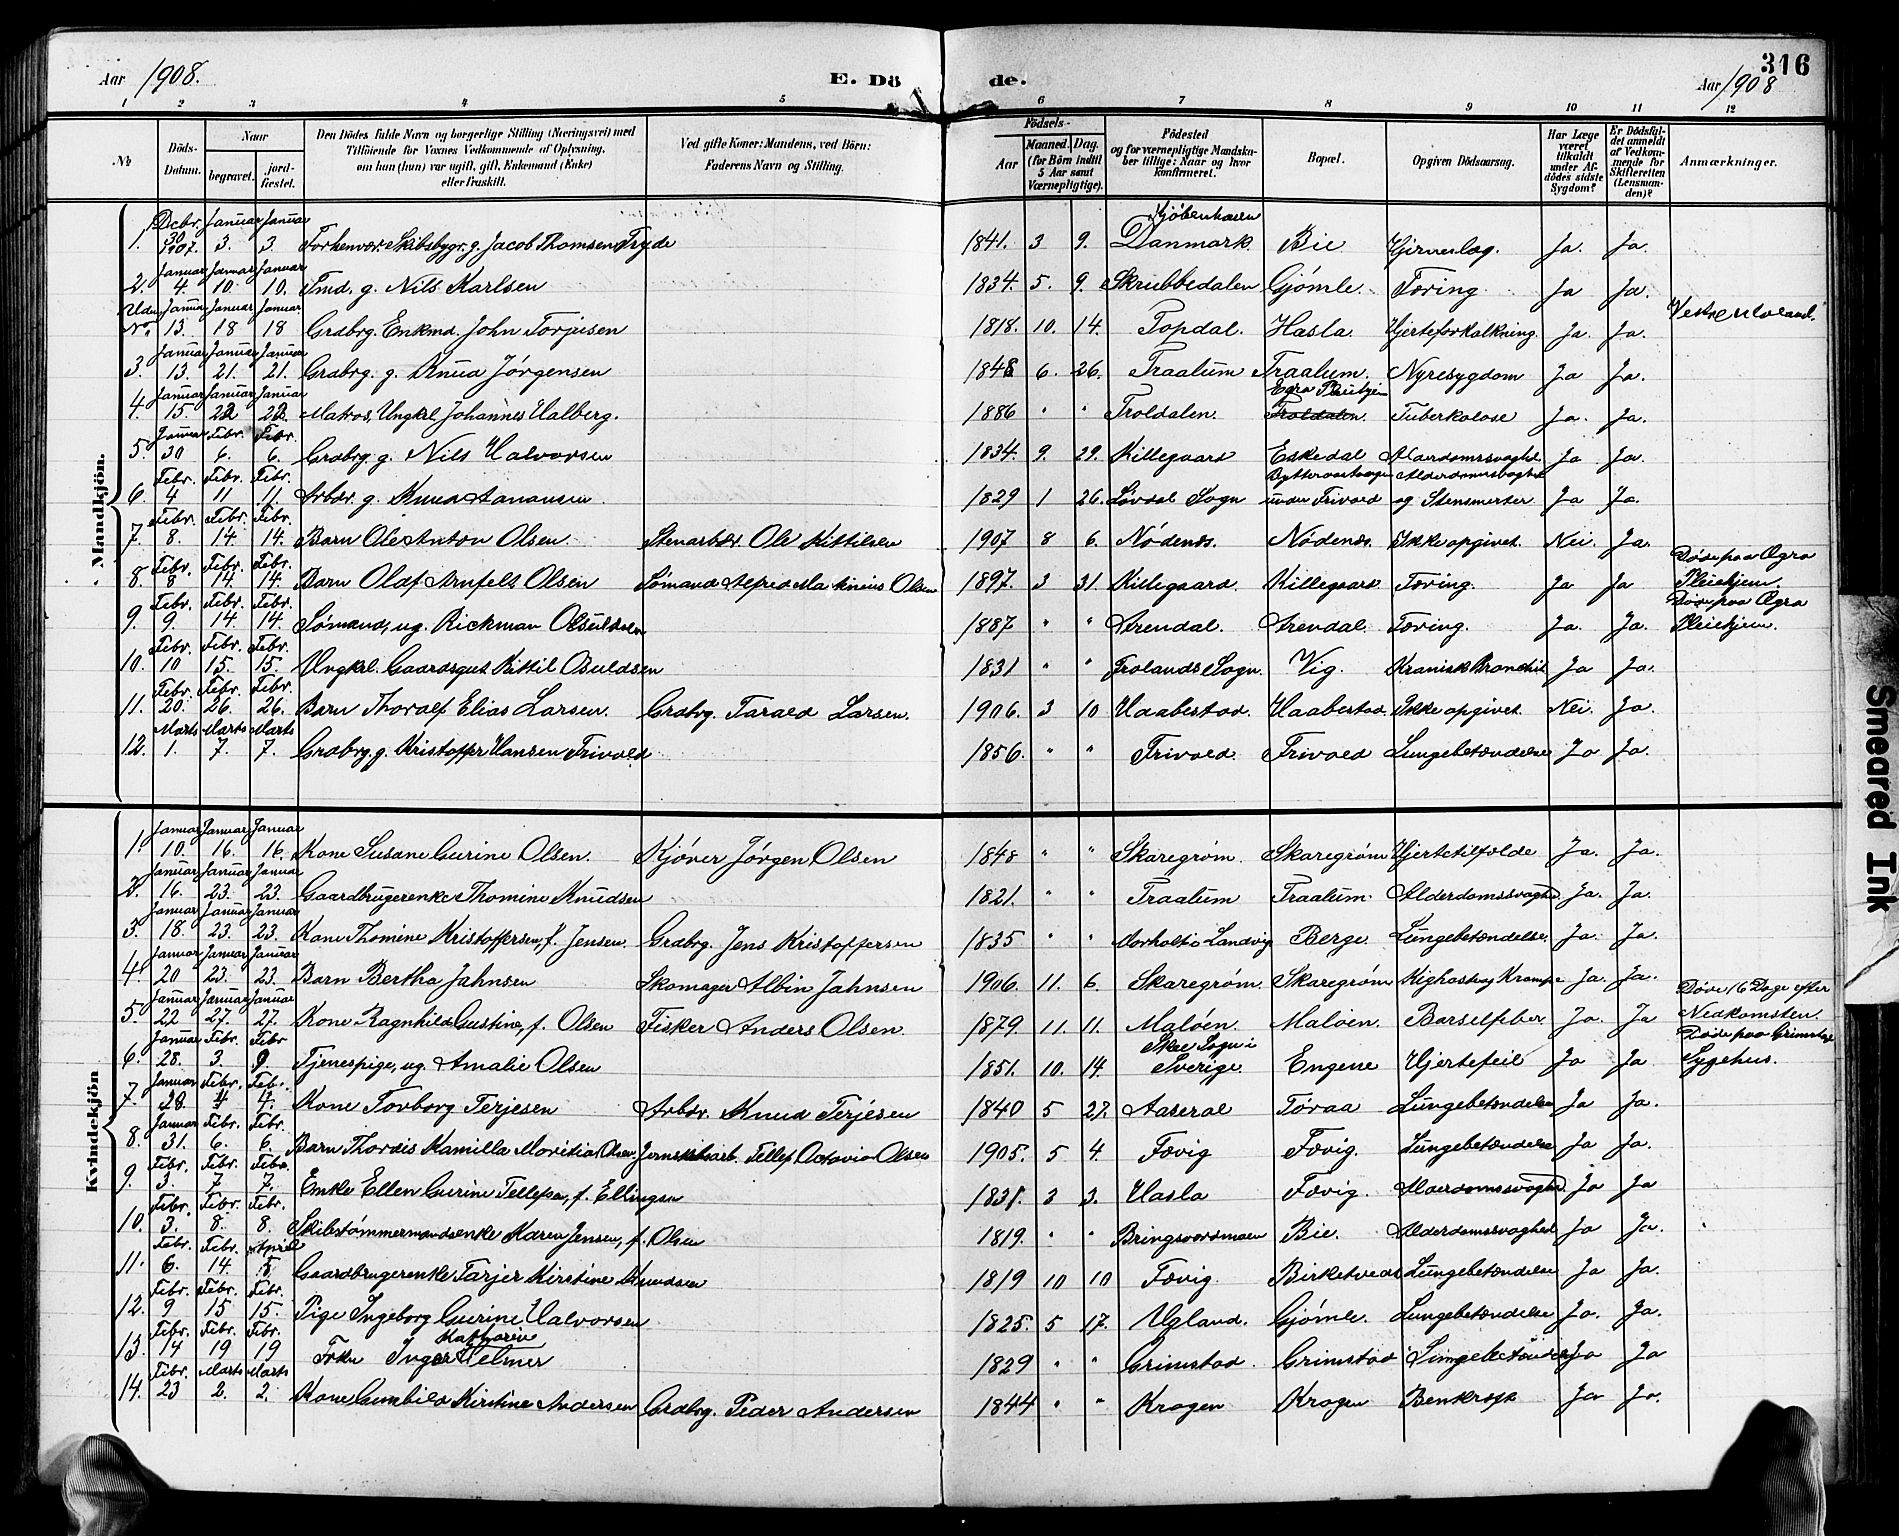 Aar 1908.
E. Dö de.
Aar 1908
316
1 2 3 4 5 6 7 8 9 10 11 12
№ Döds-Datum. Naar begravet. jord-fæstet. Den Dödes fulde Navn og borgerlige Stilling (Næringsvei) med Tilföiende for Voxnes Vedkommende af Oplysning, om han (hun) var ugift, gift, Enkemand (Enke) eller fraskilt. Ved gifte Koner: Mandens, ved Börn: Faderens Navn og Stilling. Födsels- Aar Maaned. Dag. (for Börn indtil 5 Aar samt Værnepligtige). Födested og for værnepligtige Mandskaber tillige: Naar og hvor konfirmeret. Bopæl. Opgiven Dödsaarsag. Har Læge været tilkaldt under Afdödes sidste Sygdom? Er Dödsfaldet anmeldt af Vedkommende for Skifteretten (Lensmanden)? Anmærkninger.
Mandkjön.
1. Decbr. 30 1907. Januar 3. Januar 3. Forhenvær. Skibsbygr. g. Jacob Thomsen Fryde 1841. 3 9. Kjöbenhavn Danmark. Bie Hjerneslag. Ja. Ja.
2. Januar 4. Januar 10. Januar 10. Fmd. g. Nils Karlsen 1834. 5. 9. Skrubbedalen Gjömle. Tæring. Ja Ja.
Uden No. Januar 13. Januar 18 Januar 18 Grdbrg. Enkmd. John Torjusen 1818. 10. 14. Topdal. Hasla. Hjerteforkalkning. Ja. Ja.
3. Januar 13. Januar 21. Januar 21. Grdbrg. g. Knud Jörgensen 1848 6. 26. Traalum Traalum. Nyresygdom Ja Ja.
4. Januar 15. Januar 22 Januar 22. Matros, Ungkl. Johannes Halberg. 1886 " " Troldalen. Troldalen. Tuberkolose Ja. Ja.
5. Januar 30 Febr. 6. Febr. 6. Grdbrg. g. Nils Halvorsen 1834. 9. 29. Killegaard Eskedal Alderdomssvaghd. Ja Ja.
6 Febr. 4 Febr. 11 Febr. 11. Arbdr. g. Knud Aanansen. 1829 1 26. Lövdal Sogn under Trivold Alderdomssvaghed og Stensmerter Ja Ja.
7. Febr. 8. Febr. 14. Febr. 14. Barn Ole Anton Olsen. Stenarbdr. Ole Kittilsen 1907 8 6. Nödenæs. Nödenæs. Ikke opgivet. Nei. Ja.
8. Febr. 8 Febr. 14. Febr. 14. Barn Olaf Arnfelt Olsen Sömand Alfred Olsen 1897. 3 31. Killegaard. Killegaard Tæring. Ja Ja Döde paa Ögra Pleiehjem.
9. Febr. 9. Febr. 14. Febr. 14. Sömand, ug. Rickman Osuldsen 1887 " " Arendal. Arendal. Tæring. Ja. Ja. Döde paa Ögra Pleiehjem.
10. Febr. 10 Febr. 15. Febr. 15. Ungkrl. Gaardsgut Kittil Osuldsen 1831 " " Frolands Sogn. Vig. Kronisk Bronchit Ja Ja.
11. Febr. 20. Febr. 26. Febr. 26. Barn Thoralf Elias Larsen. Grdbrg. Tarald Larsen. 1906. 3 10 Haabestad. Haabestad. Ikke opgivet. Nei. Ja.
12. Marts 1. Marts 7. Marts 7. Grdbrg g. Kristoffer Hansen Trivold 1856. " " Trivold. Trivold Lungebetændelse Ja Ja.
Kvindekjön
1. Januar 10. Januar 16. Januar 16. Kone Susane Gurine Olsen. Kjörer Jörgen Olsen 1848 " " Skaregröm. Skaregröm Hjertetilfælde Ja. Ja.
2. Januar 16. Januar 23. Januar 23. Gaardbrugerenke Thomine Knudsen 1821. " " Traalum Traalum. Alderdomssvaghd Ja. Ja.
3. Januar 18. Januar 23. Januar 23. Kone Thomine Kristoffersen, f. Jensen. Grdbrg. Jens Kristoffersen 1835 " " Morholt i Landvig Berge. Lungebetændelse. Ja. Ja.
4. Januar 20 Januar 23. Januar 23. Barn Bertha Jahnsen Skomager Albin Jahnsen 1906. 11. 6. Skaregröm. Skaregröm Kighoste og Krampe Ja. Ja.
5. Januar 22 Januar 27. Januar 27. Kone Ragnhild Gustine, f. Olsen Fisker Anders Olsen. 1879. 11. 11. Malöen. Malöen. Barselfeber. Ja. Ja Döde 16 Dage efter Nedkomsten.
6. Januar 28. Febr. 3. Febr 9 Tjenespige, ug. Amalie Olsen 1851. 10. 14. Skee Sogn i Sverige. Engene Hjertefeil Ja Ja Döde paa Grimstad Sygehus.
7. Januar 28. Febr. 4 Febr. 4. Kone Torborg Terjesen Arbdr. Knud Terjesen 1840 5 27. Aaseral Töraa Lungebetændelse Ja Ja.
8. Januar 31. Febr. 6. Febr. 6 Barn Thordis Kamilla Olsen, Tellef Octavio Olsen 1905. 5 4. Fævig Fævig. Lungebetændelse Ja Ja.
9. Febr. 3. Febr. 7 Febr. 7. Enke Ellen Gurine Tellefsen, f. Ellingsen 1831. 3 3. Hasla Fævig. Alderdomssvaghd. Ja Ja
10. Febr. 3. Febr. 8. Febr. 8. Skibstömmermandsenke Karen Jensen, f. Olsen 1819. " " Bringsværdmoen Bie. Alderdomssvaghed Ja Ja.
11. Febr. 6. Febr. 14. April 5 Gaardbrugerenke Tarjer Kirstine Knudsen 1819 10 10 Fævig. Birketveds. Lungebetændelse Ja Ja.
12. Febr. 9 Febr. 15 Febr. 15. Pige Ingeborg Gurine Halvorsen 1825. 5 17. Ugland. Gjömle. Lungebetændelse Ja. Ja.
13. Febr. 14 Febr. 19 Febr. 19 Frkn Inger Katharine Helmer 1829 " " Grimstad. Grimstad Lungebetændelse Ja Ja
14. Febr. 23 Marts 2. Marts 2. Kone Gunhild Kirstine Andersen Grdbrg. Peder Andersen 1844 " " Kragen Kragen Benkræft Ja Ja.
Smeared Ink